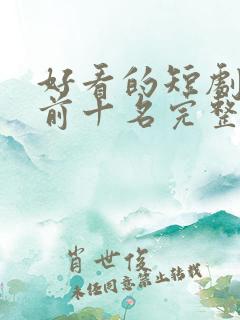 好看的短劇
前十名完整
肖世俊
未经同意禁止转载